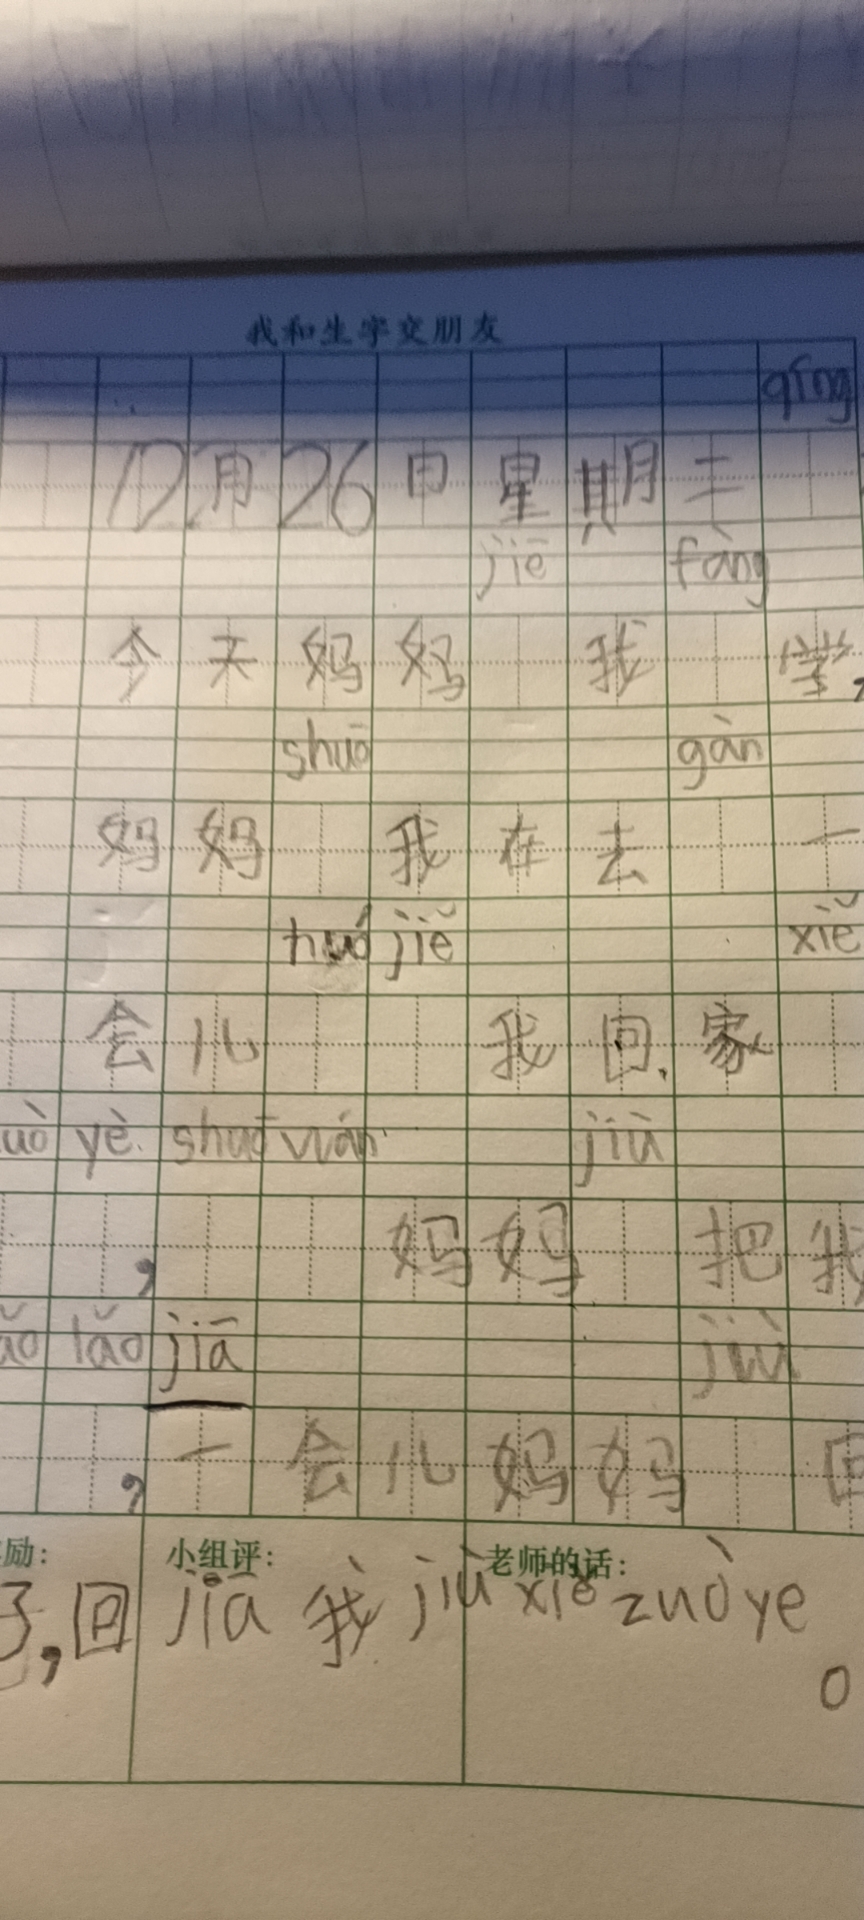 我和生字交朋友
qíng
12月26日星期三
jiē fàng
今天妈妈 我 学,
shuō gàn
妈妈 我在去 一
huó jiě xiě
会儿 我回,家
uò yè shuō wán jiù
, 妈妈 把我
ǎo lǎo jiā jiù
, 一会儿妈妈 回
励: 小组评: 老师的话:
了,回 jiā 我 jiù xiě zuò ye
。